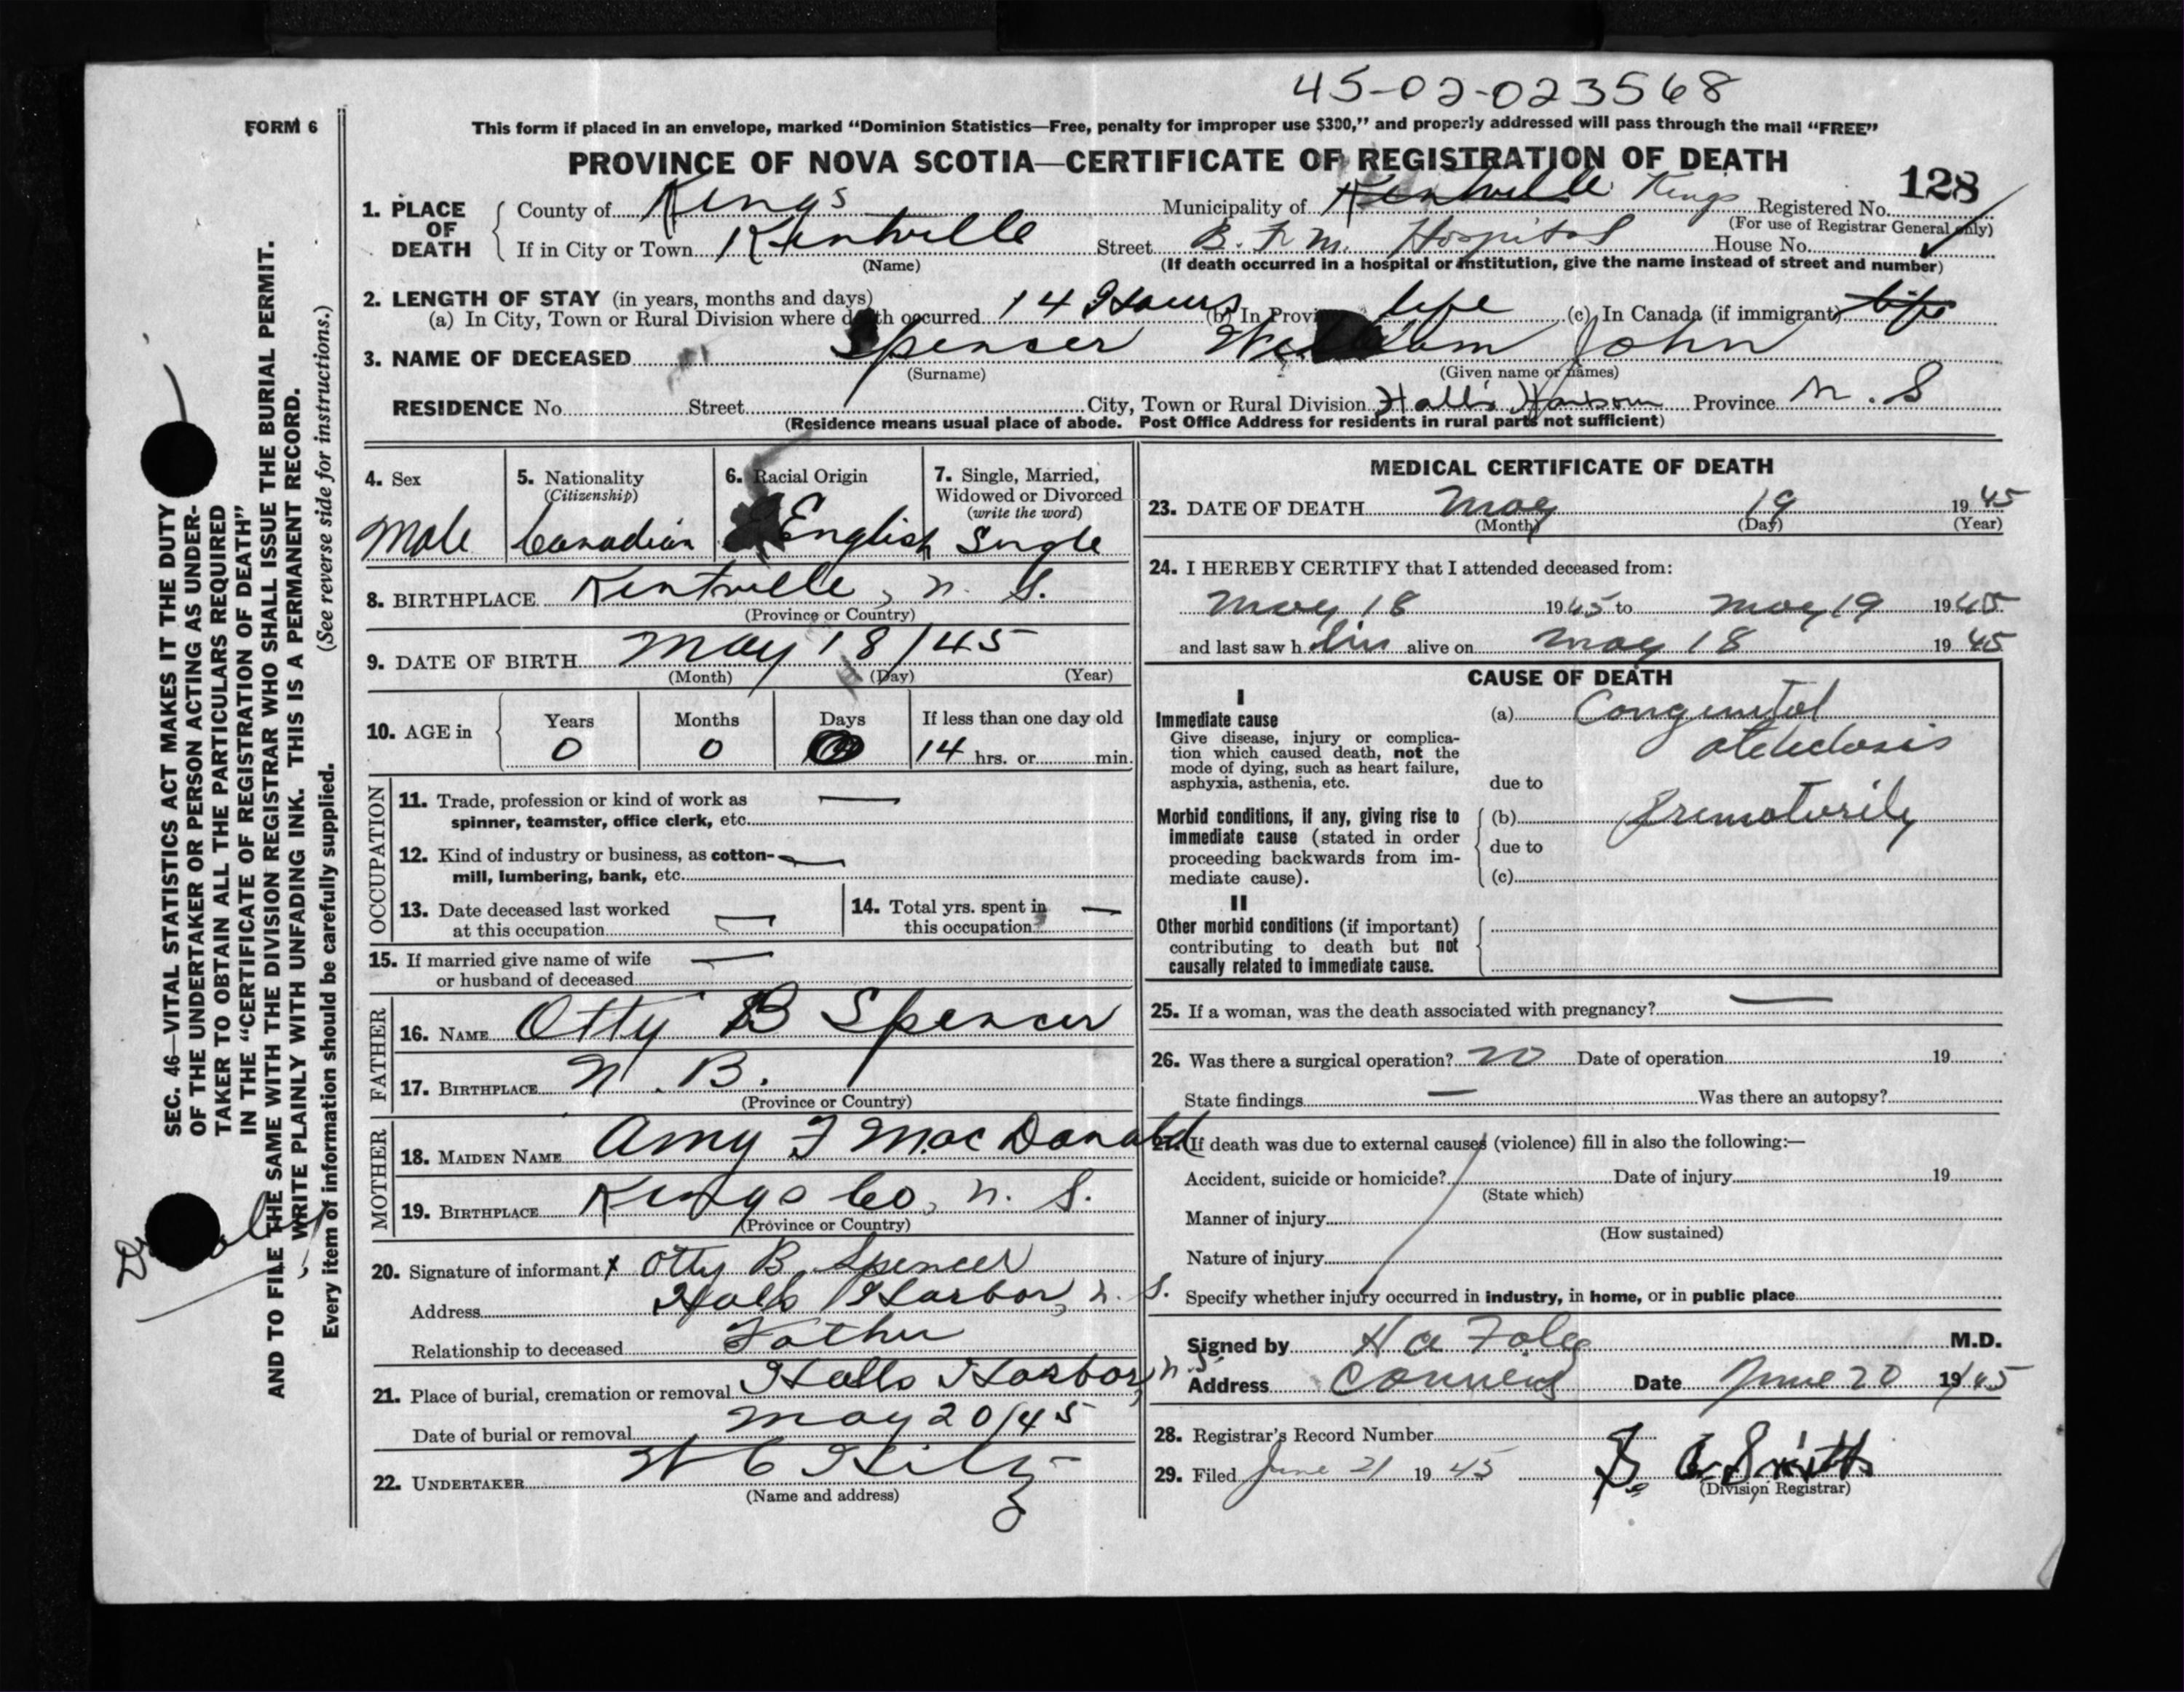 45-02-023568
FORM 6
This form if placed in an envelope, marked "Dominion Statistics—Free, penalty for improper use $300," and properly addressed will pass through the mail "FREE"
PROVINCE OF NOVA SCOTIA—CERTIFICATE OF REGISTRATION OF DEATH
128
1. PLACE OF DEATH
County of Kings Municipality of Kentville Kings Registered No.
(For use of Registrar General only)
If in City or Town Kentville Street B. F. M. Hospital House No.
(Name) (If death occurred in a hospital or institution, give the name instead of street and number)
2. LENGTH OF STAY (in years, months and days)
(a) In City, Town or Rural Division where death occurred 14 Hours (b) In Province life (c) In Canada (if immigrant) life
3. NAME OF DECEASED Spencer William John
(Surname) (Given name or names)
RESIDENCE No. Street City, Town or Rural Division Hall's Harbour Province N. S
(Residence means usual place of abode. Post Office Address for residents in rural parts not sufficient)
4. Sex Male
5. Nationality (Citizenship) Canadian
6. Racial Origin English
7. Single, Married, Widowed or Divorced (write the word) Single
8. BIRTHPLACE Kentville, N. S.
(Province or Country)
9. DATE OF BIRTH May 18/45
(Month) (Day) (Year)
10. AGE in Years 0 Months 0 Days 0 If less than one day old 14 hrs. or min.
OCCUPATION
11. Trade, profession or kind of work as —
spinner, teamster, office clerk, etc.
12. Kind of industry or business, as cotton- —
mill, lumbering, bank, etc.
13. Date deceased last worked —
at this occupation
14. Total yrs. spent in —
this occupation
15. If married give name of wife —
or husband of deceased
FATHER
16. NAME Otty B Spencer
17. BIRTHPLACE N. B.
(Province or Country)
MOTHER
18. MAIDEN NAME Amy F MacDonald
19. BIRTHPLACE Kings Co, N. S.
(Province or Country)
20. Signature of informant x Otty B. Spencer
Address Halls Harbor, N. S.
Relationship to deceased Father
21. Place of burial, cremation or removal Halls Harbor, N. S.
Date of burial or removal May 20/45
22. UNDERTAKER W C Hiltz
(Name and address)
MEDICAL CERTIFICATE OF DEATH
23. DATE OF DEATH May 19 1945
(Month) (Day) (Year)
24. I HEREBY CERTIFY that I attended deceased from:
May 18 1945 to May 19 1945
and last saw him alive on May 18 1945
CAUSE OF DEATH
I
Immediate cause (a) Congenital
Give disease, injury or complica- atelectasis
tion which caused death, not the
mode of dying, such as heart failure,
asphyxia, asthenia, etc. due to
Morbid conditions, if any, giving rise to (b) Prematurity
immediate cause (stated in order due to
proceeding backwards from im-
mediate cause). (c)
II
Other morbid conditions (if important)
contributing to death but not
causally related to immediate cause.
25. If a woman, was the death associated with pregnancy? —
26. Was there a surgical operation? no Date of operation 19
State findings — Was there an autopsy?
27. If death was due to external causes (violence) fill in also the following:—
Accident, suicide or homicide? Date of injury 19
(State which)
Manner of injury
(How sustained)
Nature of injury
Specify whether injury occurred in industry, in home, or in public place
Signed by H a Foley M.D.
Address Date June 20 1945
28. Registrar's Record Number
29. Filed June 21 1945 Smith
(Division Registrar)
SEC. 46—VITAL STATISTICS ACT MAKES IT THE DUTY
OF THE UNDERTAKER OR PERSON ACTING AS UNDER-
TAKER TO OBTAIN ALL THE PARTICULARS REQUIRED
IN THE "CERTIFICATE OF REGISTRATION OF DEATH"
AND TO FILE THE SAME WITH THE DIVISION REGISTRAR WHO SHALL ISSUE THE BURIAL PERMIT.
WRITE PLAINLY WITH UNFADING INK. THIS IS A PERMANENT RECORD.
Every item of information should be carefully supplied. (See reverse side for instructions.)